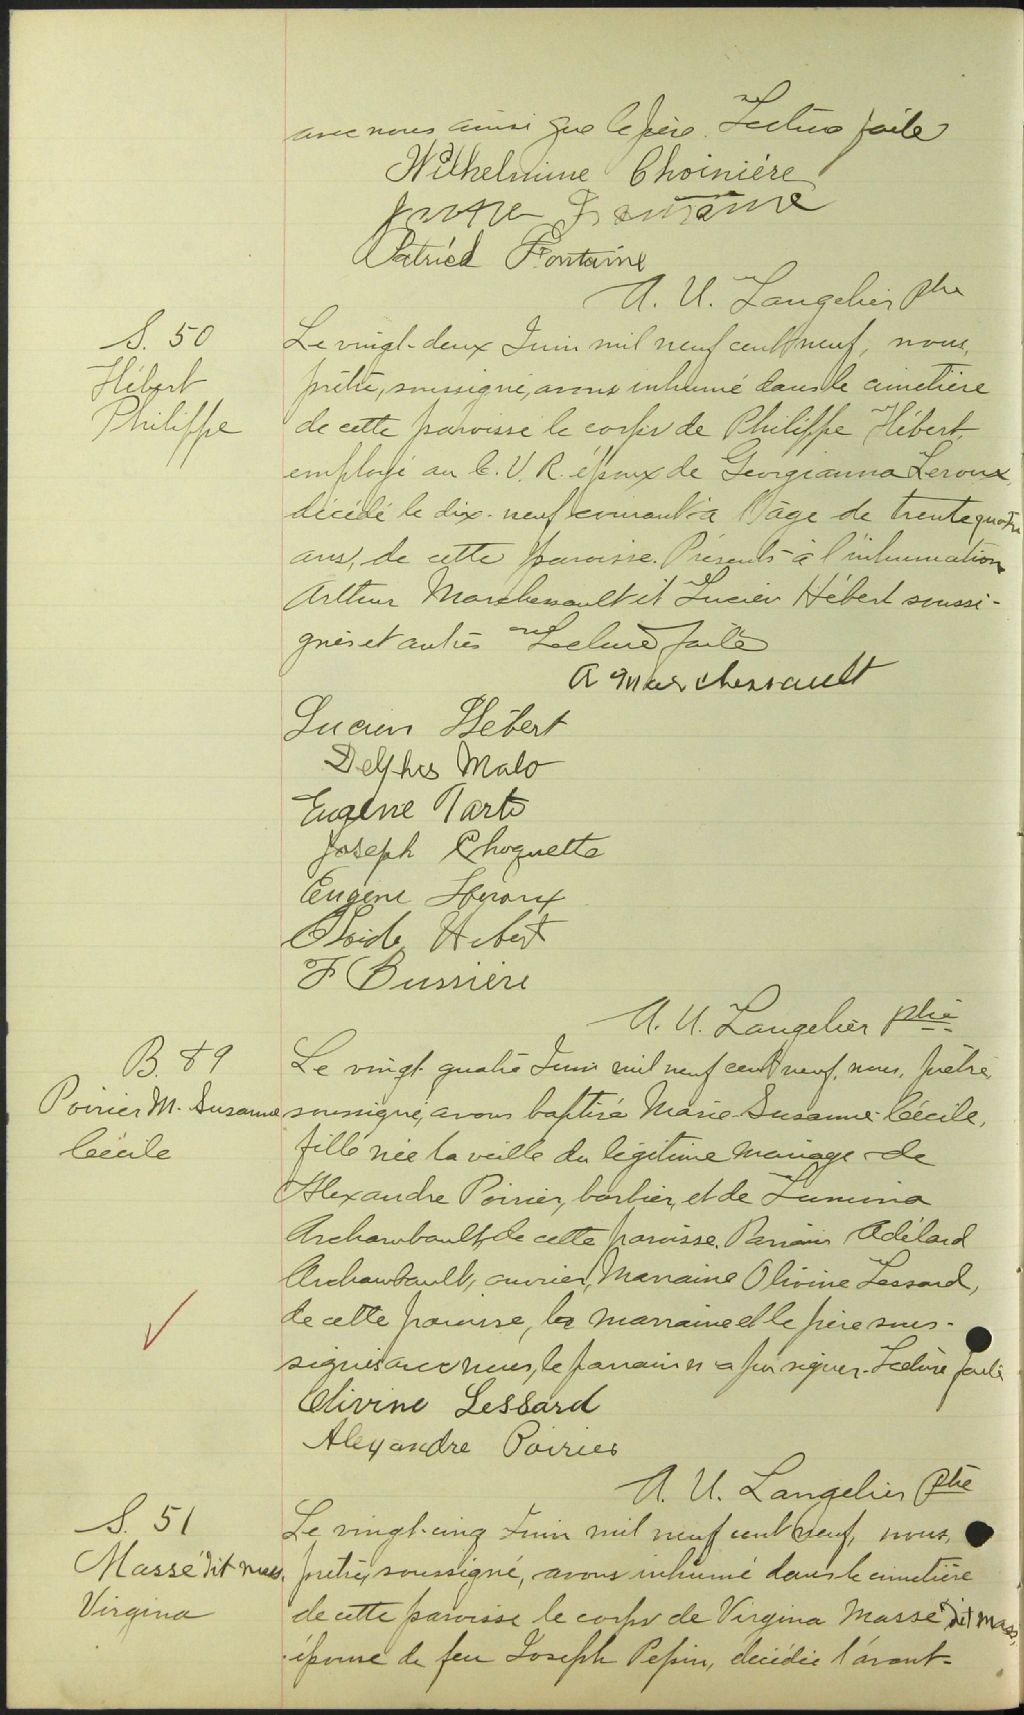 avec nous ainsi que le père. Lecture faite
Wilhelmine Choinière
Fontaine
Patrick Fontaine
A. U. Langelier ptre
S. 50
Hébert
Philippe
Le vingt-deux Juin mil neuf cent neuf, nous,
prêtre, soussigné, avons inhumé dans le cimetière
de cette paroisse le corps de Philippe Hébert,
employé au C. V. R. époux de Georgianna Leroux,
décédé le dix-neuf courant à l'âge de trente quatre
ans, de cette paroisse. Présents à l'inhumation
Arthur Marchessault et Lucien Hébert soussi-
gnés et autres Lecture faite
A Marchessault
Lucien Hébert
Delphis Malo
Eugène Tarte
Joseph Choquette
Eugène
Hébert
F Bussière
A. U. Langelier ptre
B. 89
Poirier M. Susanne
Cécile
Le vingt quatre Juin mil neuf cent neuf, nous, prêtre,
soussigné, avons baptisé Marie-Susanne-Cécile,
fille née la veille du légitime mariage de
Alexandre Poirier, barbier, et de Lumina
Archambault, de cette paroisse. Parrain Adélard
Archambault, ouvrier, Marraine Olivine Lessard,
de cette paroisse, la marraine et le père sous-
signés avec nous, le parrain n'a pu signer. Lecture faite
Olivine Lessard
Alexandre Poirier
A. U. Langelier ptre
S. 51
Massé dit mass.
Virgina
Le vingt-cinq Juin mil neuf cent neuf, nous,
prêtre, soussigné, avons inhumé dans le cimetière
de cette paroisse le corps de Virgina Massé dit mass,
épouse de feu Joseph Pepin, décédée l'avant-